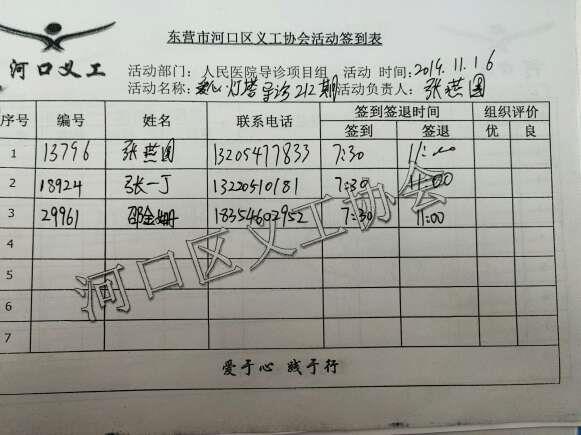 东营市河口区义工协会活动签到表
河口义工
活动部门：人民医院导诊项目组 活动 时间：2019.11.16
活动名称：爱心灯塔导诊212期 活动负责人：张燕圆
序号 编号 姓名 联系电话 签到签退时间 组织评价
签到 签退 优 良
1 13796 张燕圆 13205477833 7:30 11:00
2 18924 张一丁 13220510181 7:30 11:00
3 29961 邵金姗 18354602952 7:30 11:00
4
5
6
7
爱于心 践于行
河口区义工协会